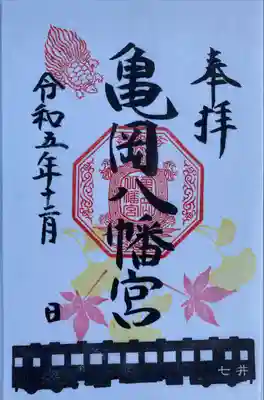 奉拝
亀岡八幡宮
令和五年十二月
日
七井